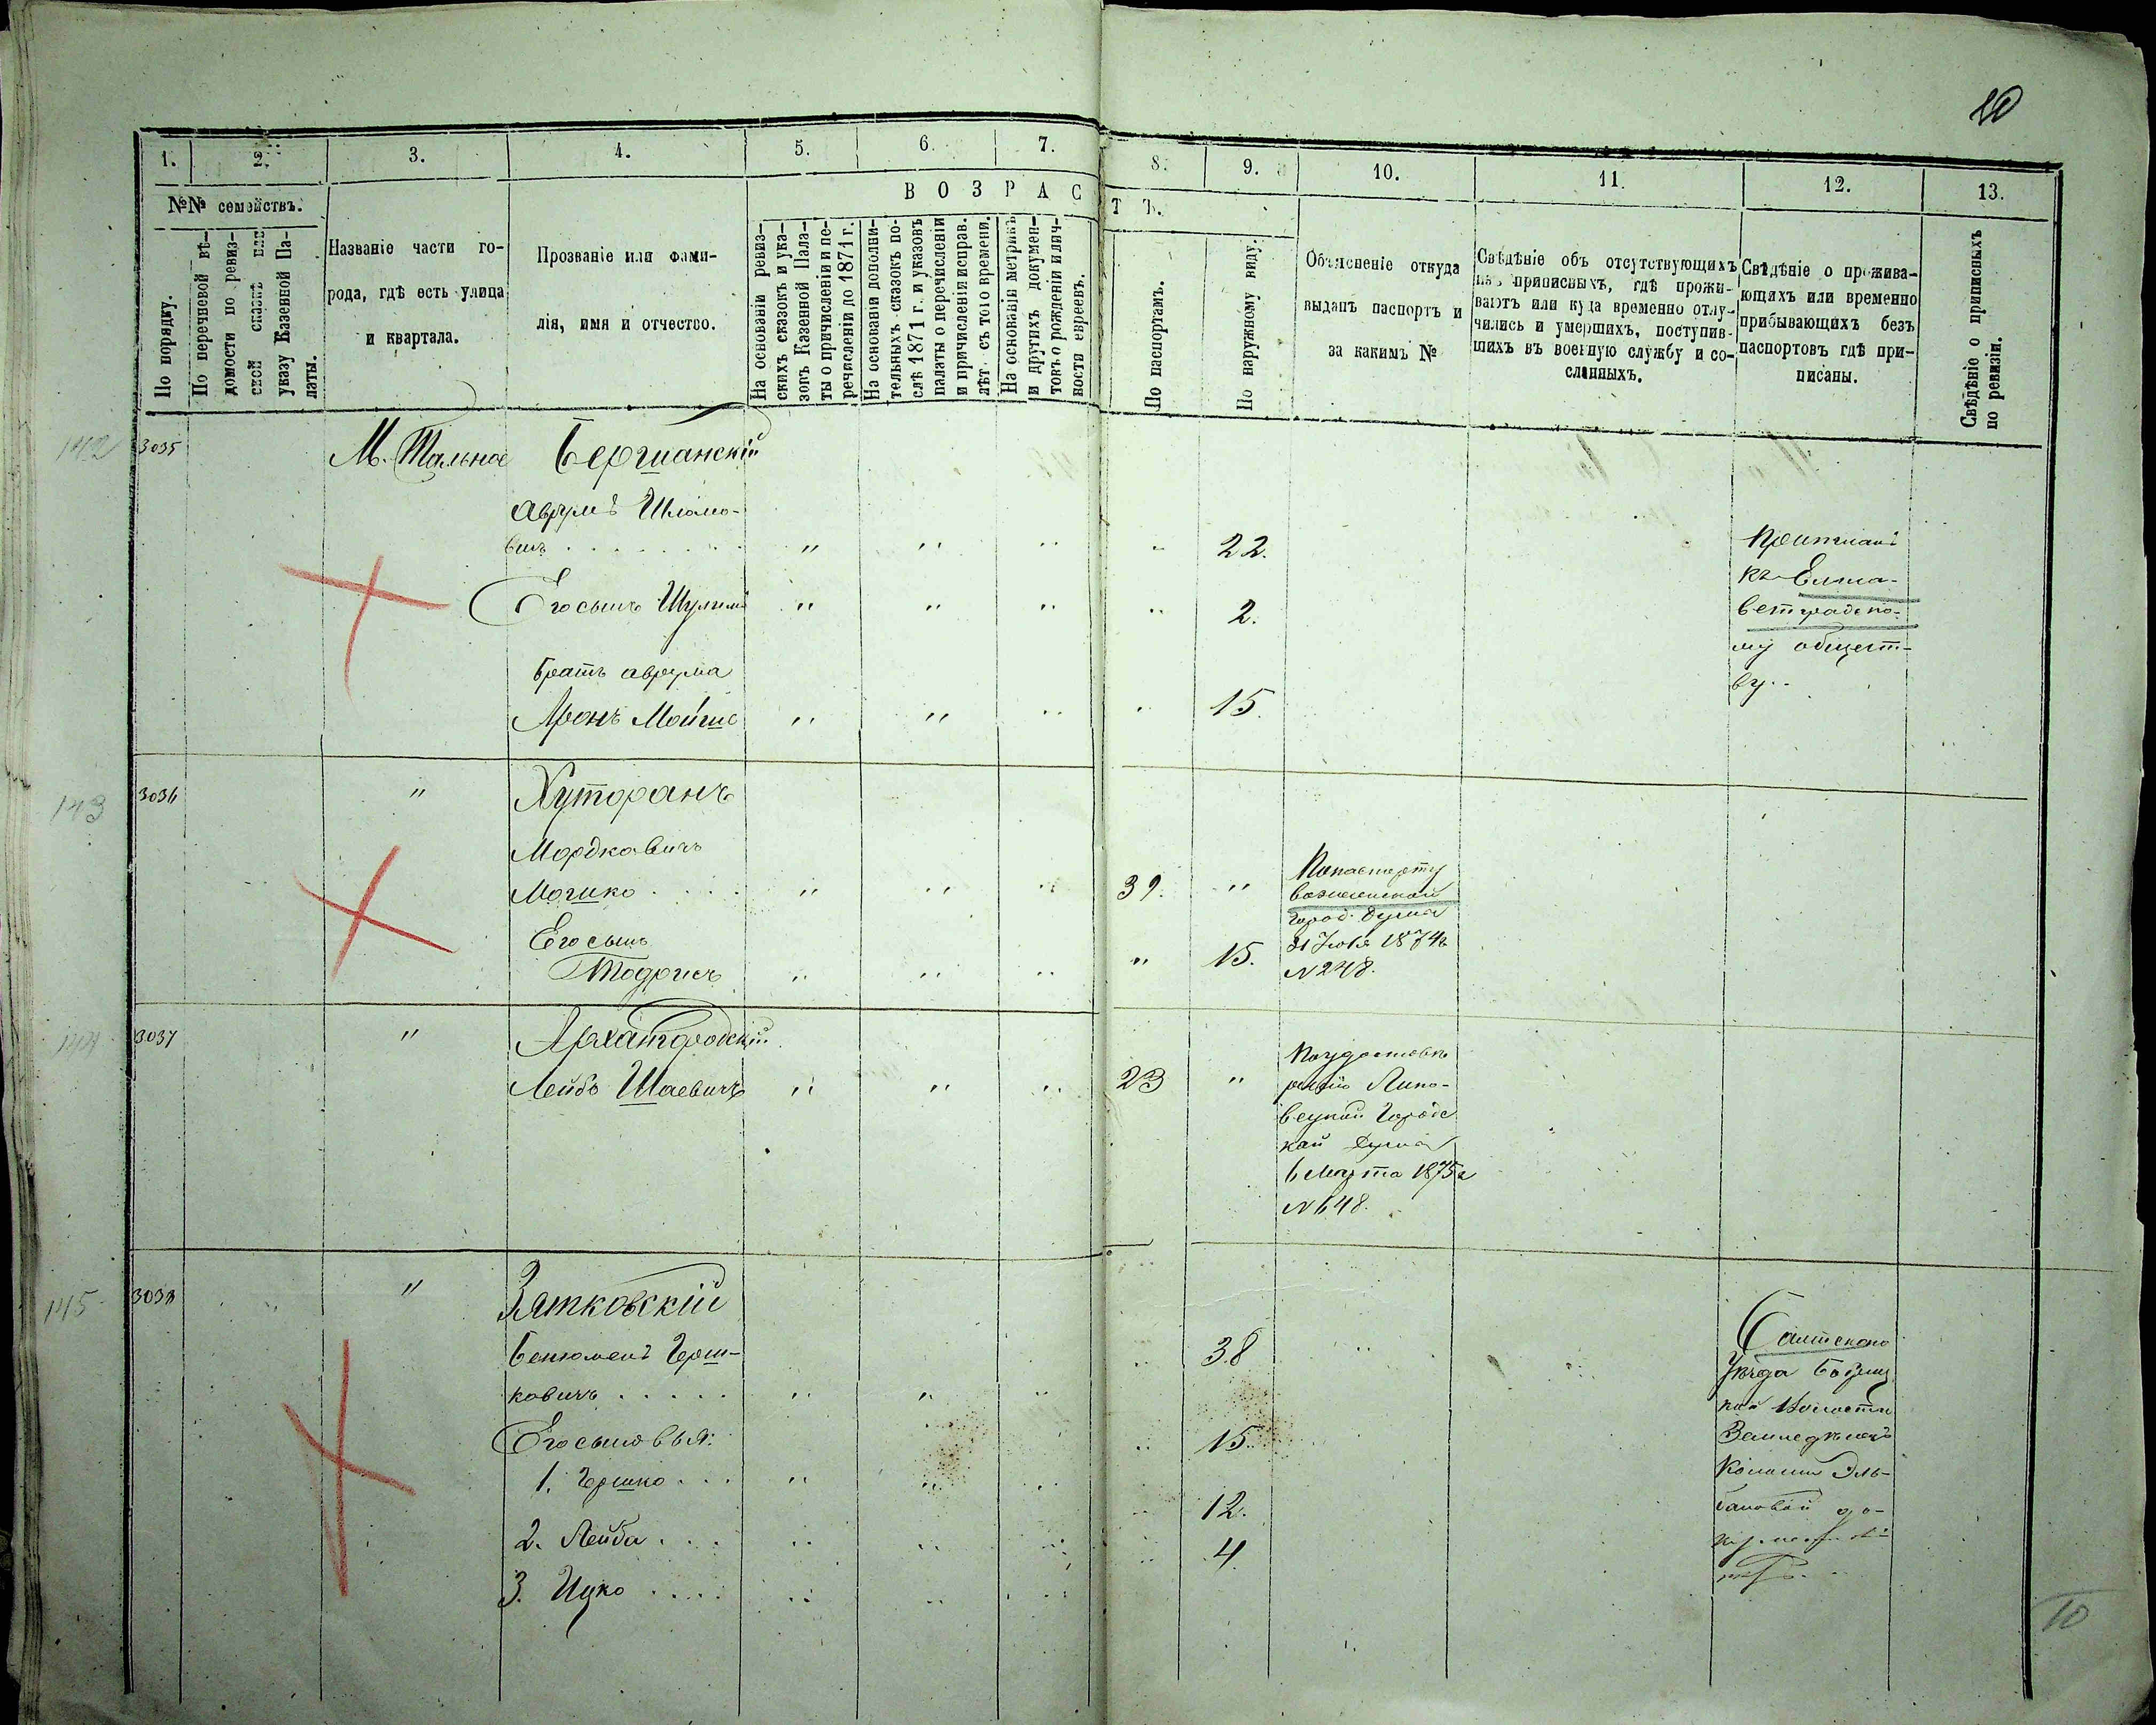 10
1. 2. 3. 4. 5. 6. 7. 8. 9. 10. 11. 12. 13.
№№ семействъ.
По порядку.
По перечневой вѣ-
домости по ревиз-
ской сказкѣ или
указу Казенной Па-
латы.
Названіе части го-
рода, гдѣ есть улица
и квартала.
Прозваніе или фами-
лія, имя и отчество.
ВОЗРАСТЪ.
На основаніи ревиз-
скихъ сказокъ и ука-
зовъ Казенной Пала-
ты о причисленіи и пе-
речисленіи до 1871 г.
На основаніи дополни-
тельныхъ сказокъ по-
слѣ 1871 г. и указовъ
палаты о перечисленіи
и причисленіи исправ.
лѣт. съ того времени.
На основаніи метрикъ
и другихъ докумен-
товъ о рожденіи и лич-
ности евреевъ.
По паспортамъ.
По наружному виду.
Объясненіе откуда
выданъ паспортъ и
за какимъ №
Свѣдѣніе объ отсутствующихъ
изъ приписныхъ, гдѣ прожи-
ваютъ или куда временно отлу-
чились и умершихъ, поступив-
шихъ въ военную службу и со-
сланныхъ.
Свѣдѣніе о прожива-
ющихъ или временно
прибывающихъ безъ
паспортовъ гдѣ при-
писаны.
Свѣдѣніе о приписныхъ
по ревизіи.
142 3035 М. Тальное Бершанскій
Аврумъ Шлемо-
вичъ . . . . . . . . " " " " 22. Приписанъ
къ Елиса-
Его сынъ Шулимъ " " " " 2. ветградско-
му общест-
Братъ Аврума ву.
Аронъ Мойше " " " " 15.
143 3036 " Хуторанъ
Мордковичъ
Мошко . . . . " " " 39. " По паспорту
вознесенской
город. Думы
Его сынъ 31 Іюля 1874 г.
Тодрисъ " " " " 15. N 248.
144 3037 " Архангородскій
Лейбъ Шаевичъ " " " 23 " По удостовѣ-
ренію Липо-
вецкой Городс
кой Думы
6 Марта 1875 г
N 648.
145 3038 " Зятковскій
Бенюменъ Герш-
ковичъ . . . . . " " " " 38 "
Его сыновья:
1. Гершко . . . " " " " 15.
2. Лейба . . . " " " " 12.
3. Ицко . . . . " " " " 4.
Уѣзда
кой Волости
Колоніи
10